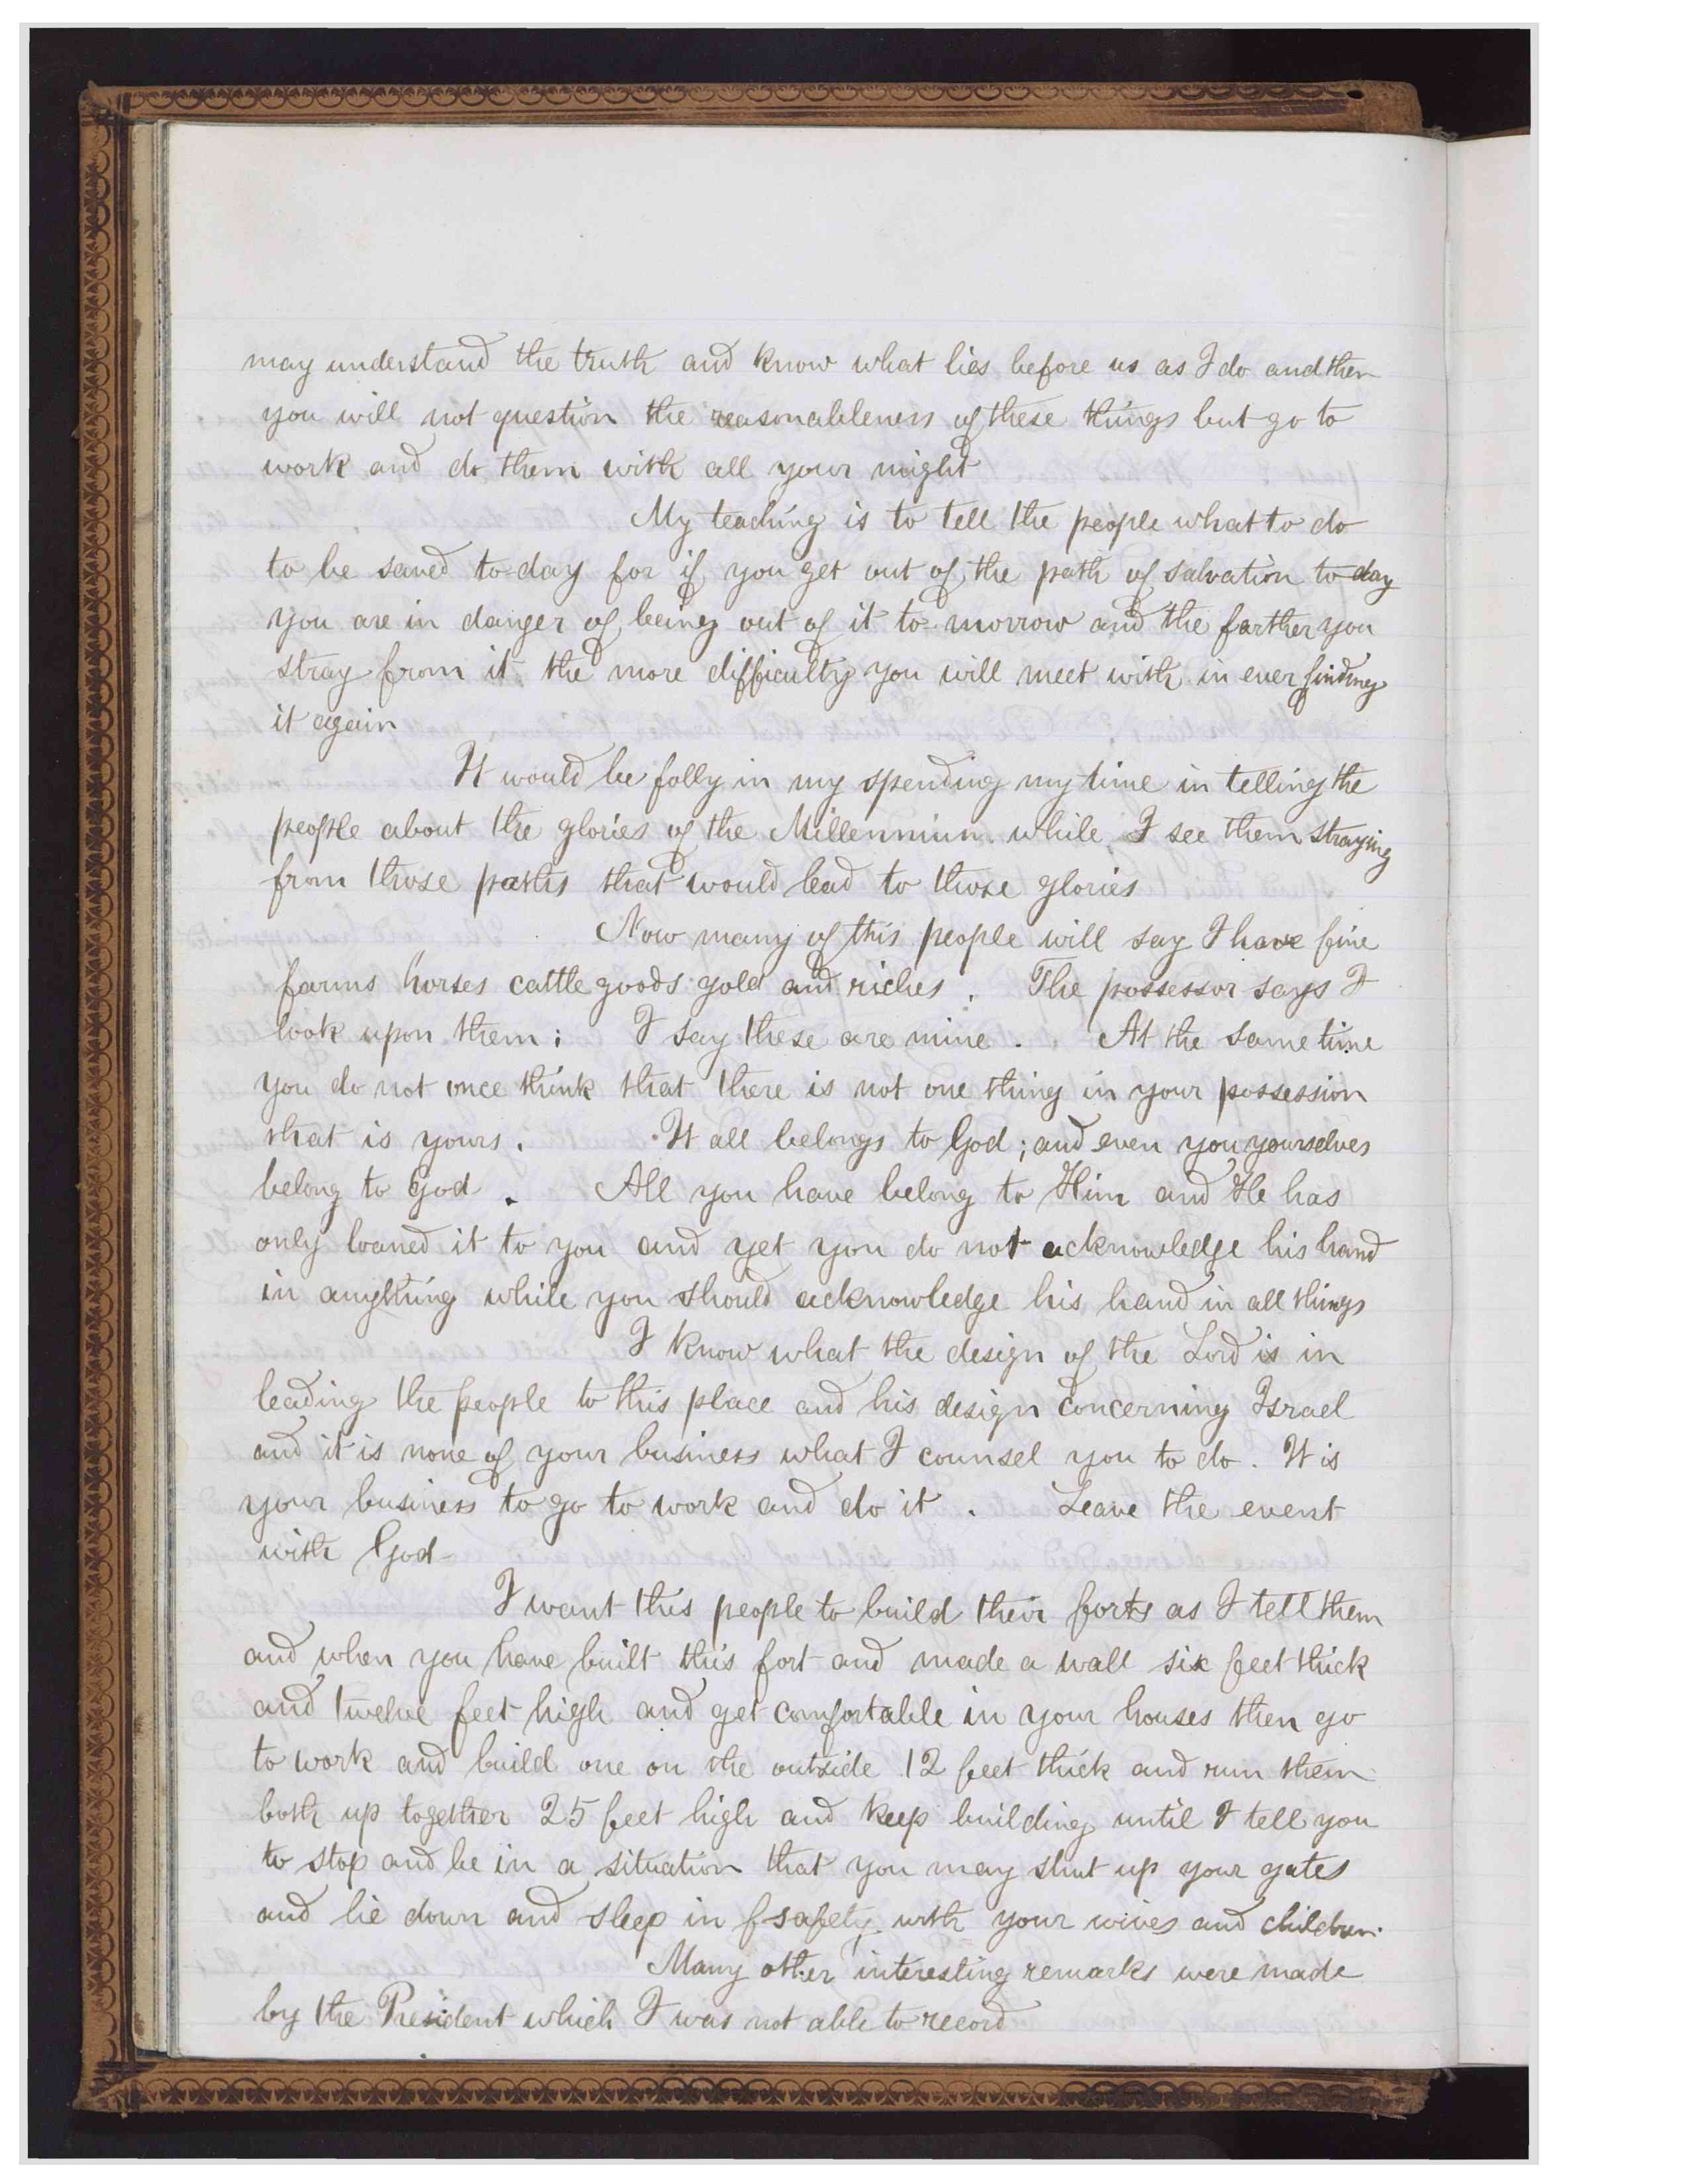 may understand the truth and know what lies before us as I do and then
you will not question the reasonableness of these things but go to
work and do them with all your might
My teaching is to tell the people what to do
to be saved to-day for if you get out of the path of salvation to-day
you are in danger of being out of it to-morrow and the farther you
stray from it the more difficulty you will meet with in ever finding
it again
It would be folly in my spending my time in telling the
people about the glories of the Millennium while I see them straying
from those paths that would lead to those glories
Now many of this people will say I have fine
farms horses cattle goods gold and riches . The possessor says I
look upon them ; I say these are mine . At the same time
you do not once think that there is not one thing in your possession
that is yours . It all belongs to God ; and even you yourselves
belong to God . All you have belong to Him and He has
only loaned it to you and yet you do not acknowledge his hand
in anything while you should acknowledge his hand in all things
I know what the design of the Lord is in
leading the people to this place and his design concerning Israel
and it is none of your business what I counsel you to do . It is
your business to go to work and do it . Leave the event
with God
I want this people to build their forts as I tell them
and when you have built this fort and made a wall six feet thick
and twelve feet high and get comfortable in your houses then go
to work and build one on the outside 12 feet thick and run them
both up together 25 feet high and keep building until I tell you
to stop and be in a situation that you may shut up your gates
and lie down and sleep in safety with your wives and children.
Many other interesting remarks were made
by the President which I was not able to record